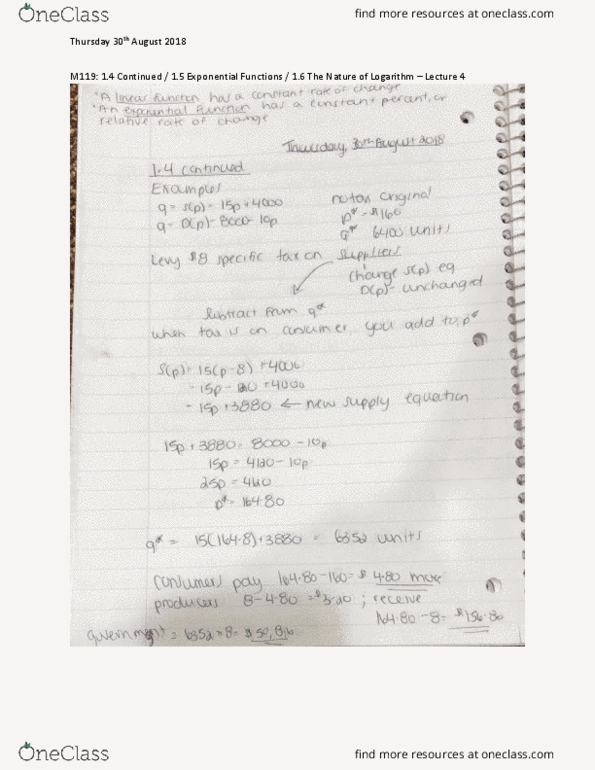 OneClass
find more resources at oneclass.com
Thursday 30th August 2018
M119: 1.4 Continued / 1.5 Exponential Functions / 1.6 The Nature of Logarithm – Lecture 4
*A linear function has a constant rate of change
*An exponential function has a constant percent, or
relative rate of change
Thursday, 30th August 2018
1.4 continued
Example/
q = S(p) = 15p + 4000
q = D(p) = 8000 - 10p
no tax original
p* = $160
q* 6400 units
Levy $8 specific tax on suppliers
change S(p) eq
D(p) - unchanged
Subtract from q*
when tax is on consumer, you add to p*
S(p) = 15(p-8) + 4000
= 15p - 120 + 4000
= 15p + 3880 ← new supply equation
15p + 3880 = 8000 - 10p
15p = 4120 - 10p
25p = 4120
p* = 164.80
q* = 15(164.8) + 3880 = 6352 units
Consumers pay 164.80 - 160 = $4.80 more
producers 8 - 4.80 = $3.20 ; receive
164.80 - 8 = $156.80
government = 6352 × 8 = $50,816
OneClass
find more resources at oneclass.com